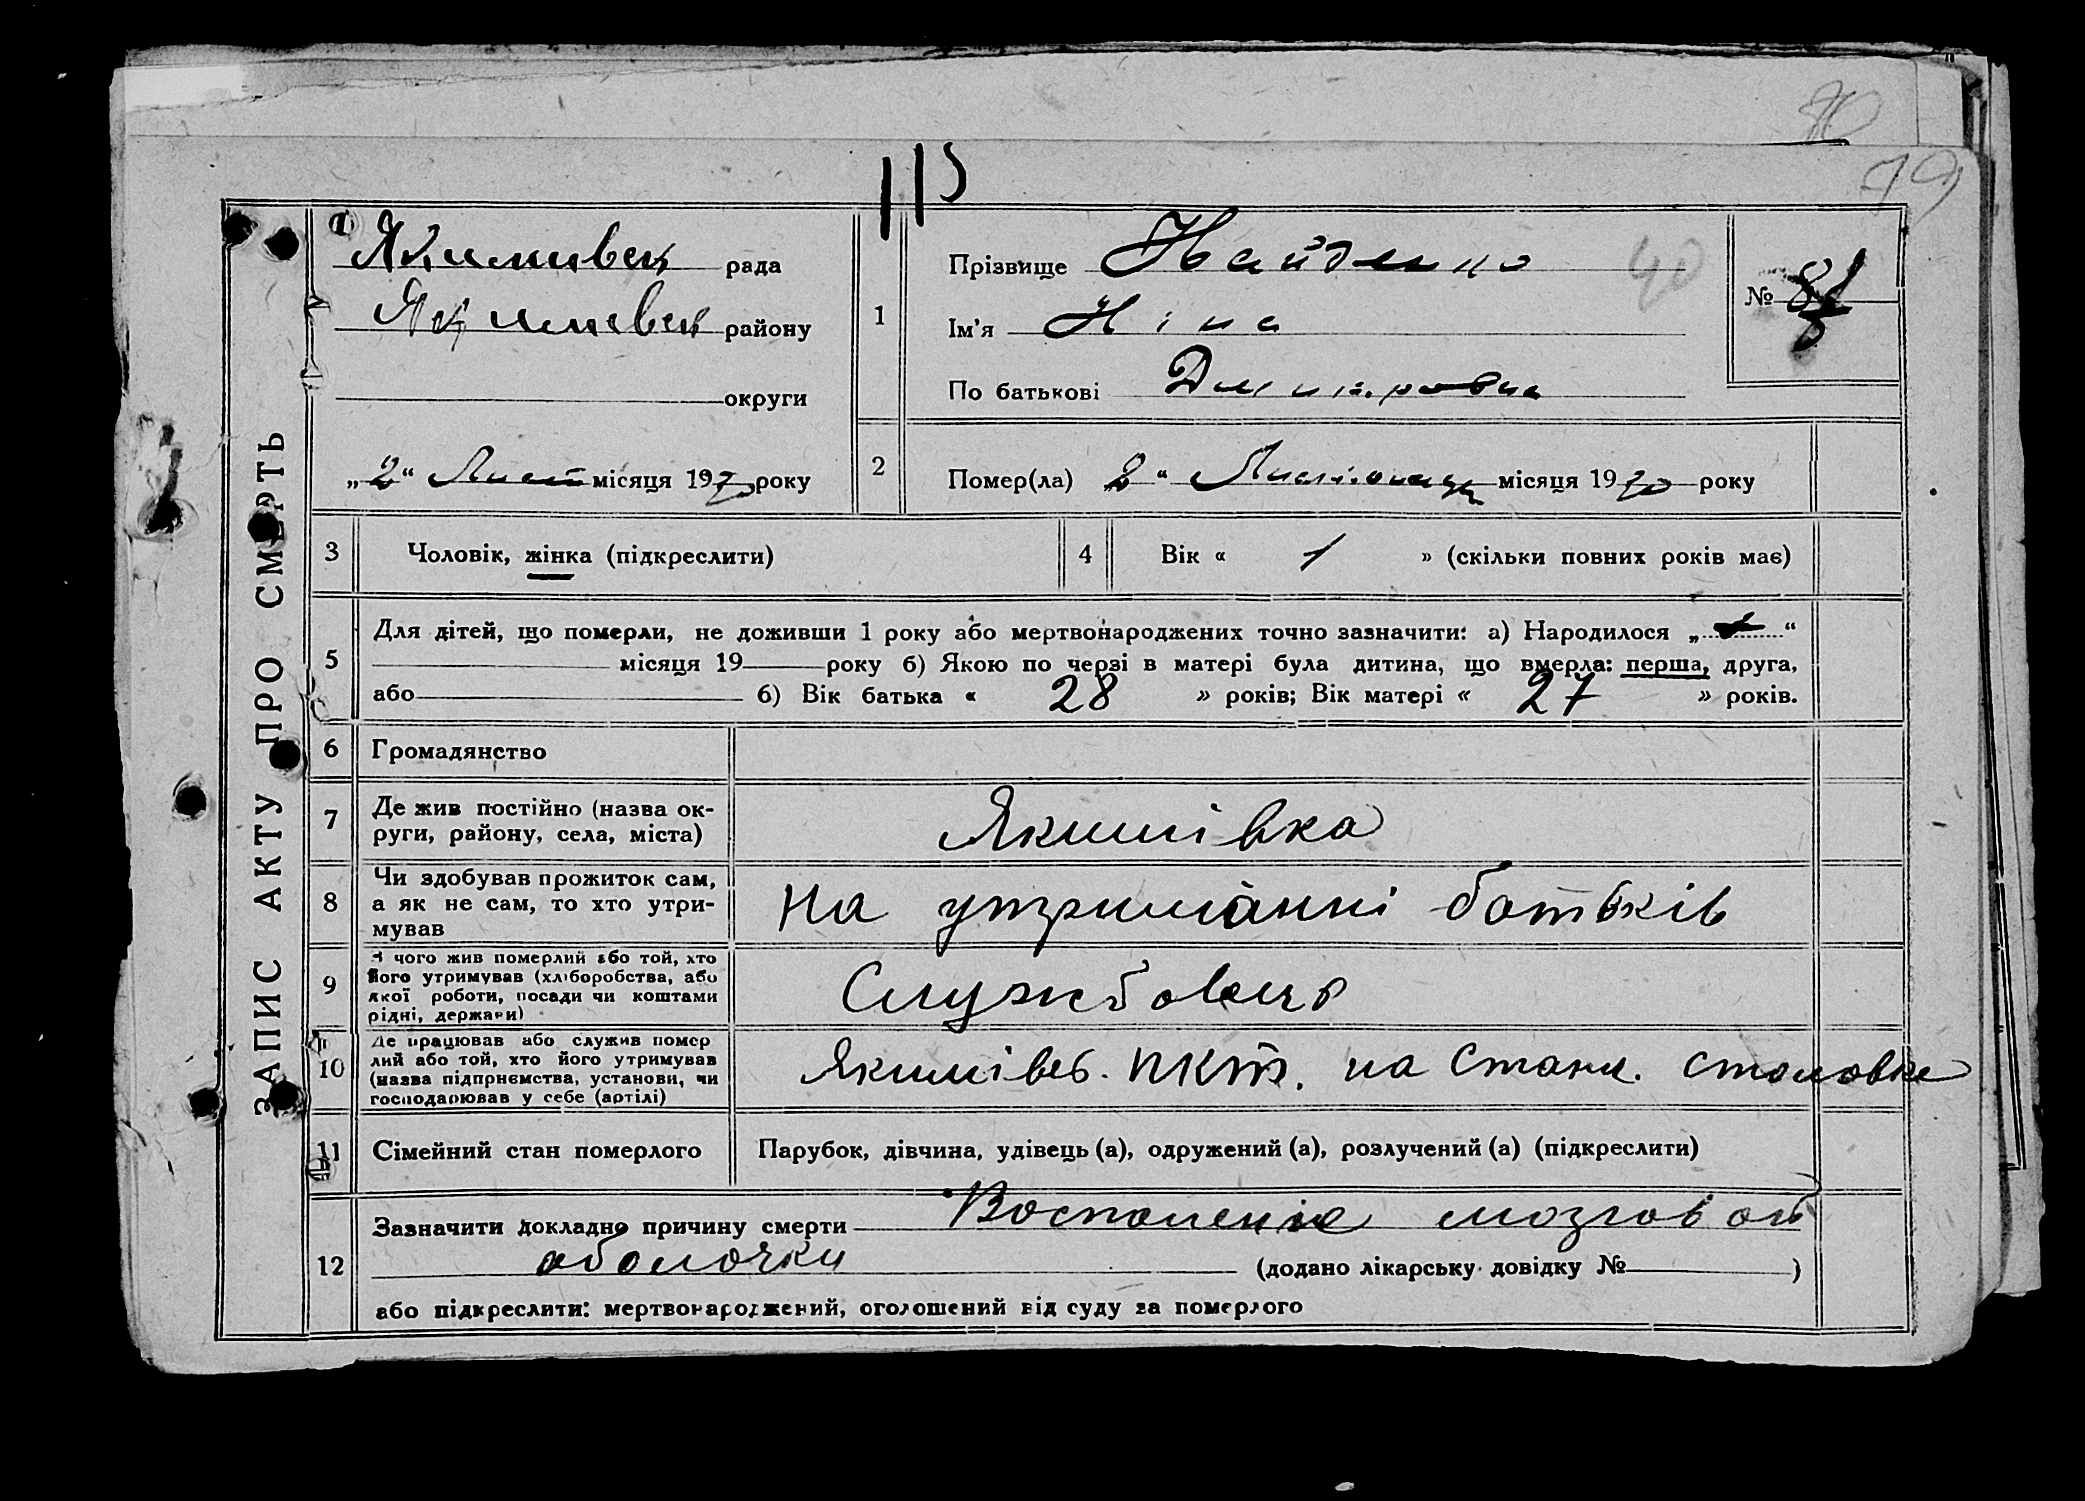 70
79
113
ЗАПИС АКТУ ПРО СМЕРТЬ
Якимивск рада
Якимивск району
округи
„2“ Лист місяця 1930 року
1
Прізвище Найденко
40
Ім’я Ніна
По батькові Дмитровна
№
2
Помер(ла) „2“ Листопада місяця 1930 року
3 Чоловік, жінка (підкреслити)
4 Вік « 1 » (скільки повних років має)
5
Для дітей, що померли, не доживши 1 року або мертвонароджених точно зазначити: а) Народилося „ “
місяця 19 року б) Якою по черзі в матері була дитина, що вмерла: перша, друга,
або б) Вік батька « 28 » років; Вік матері « 27 » років.
6 Громадянство
7 Де жив постійно (назва ок-
руги, району, села, міста)
Якимівка
8 Чи здобував прожиток сам,
а як не сам, то хто утри-
мував
на утриманні батьків
9 З чого жив померлий або той, хто
його утримував (хліборобства, або
якої роботи, посади чи коштами
рідні, держави)
Службовець
10 Де працював або служив помер
лий або той, хто його утримував
(назва підприємства, установи, чи
господарював у себе (артілі)
Якимівс. на Станц. столовке
11 Сімейний стан померлого
Парубок, дівчина, удівець (а), одружений (а), розлучений (а) (підкреслити)
12
Зазначити докладно причину смерти Воспаление мозговой
оболочки (додано лікарську довідку № )
або підкреслити: мертвонароджений, оголошений від суду за померлого